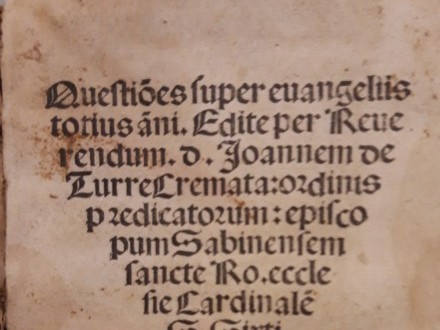 Questiões super euangeliis
totius āni. Edite per Reue
rendum. d. Joannem de
TurreCremata: ordinis
predicatorum: episco
pum Sabinensem
sancte Ro. eccle
sie Cardinalē